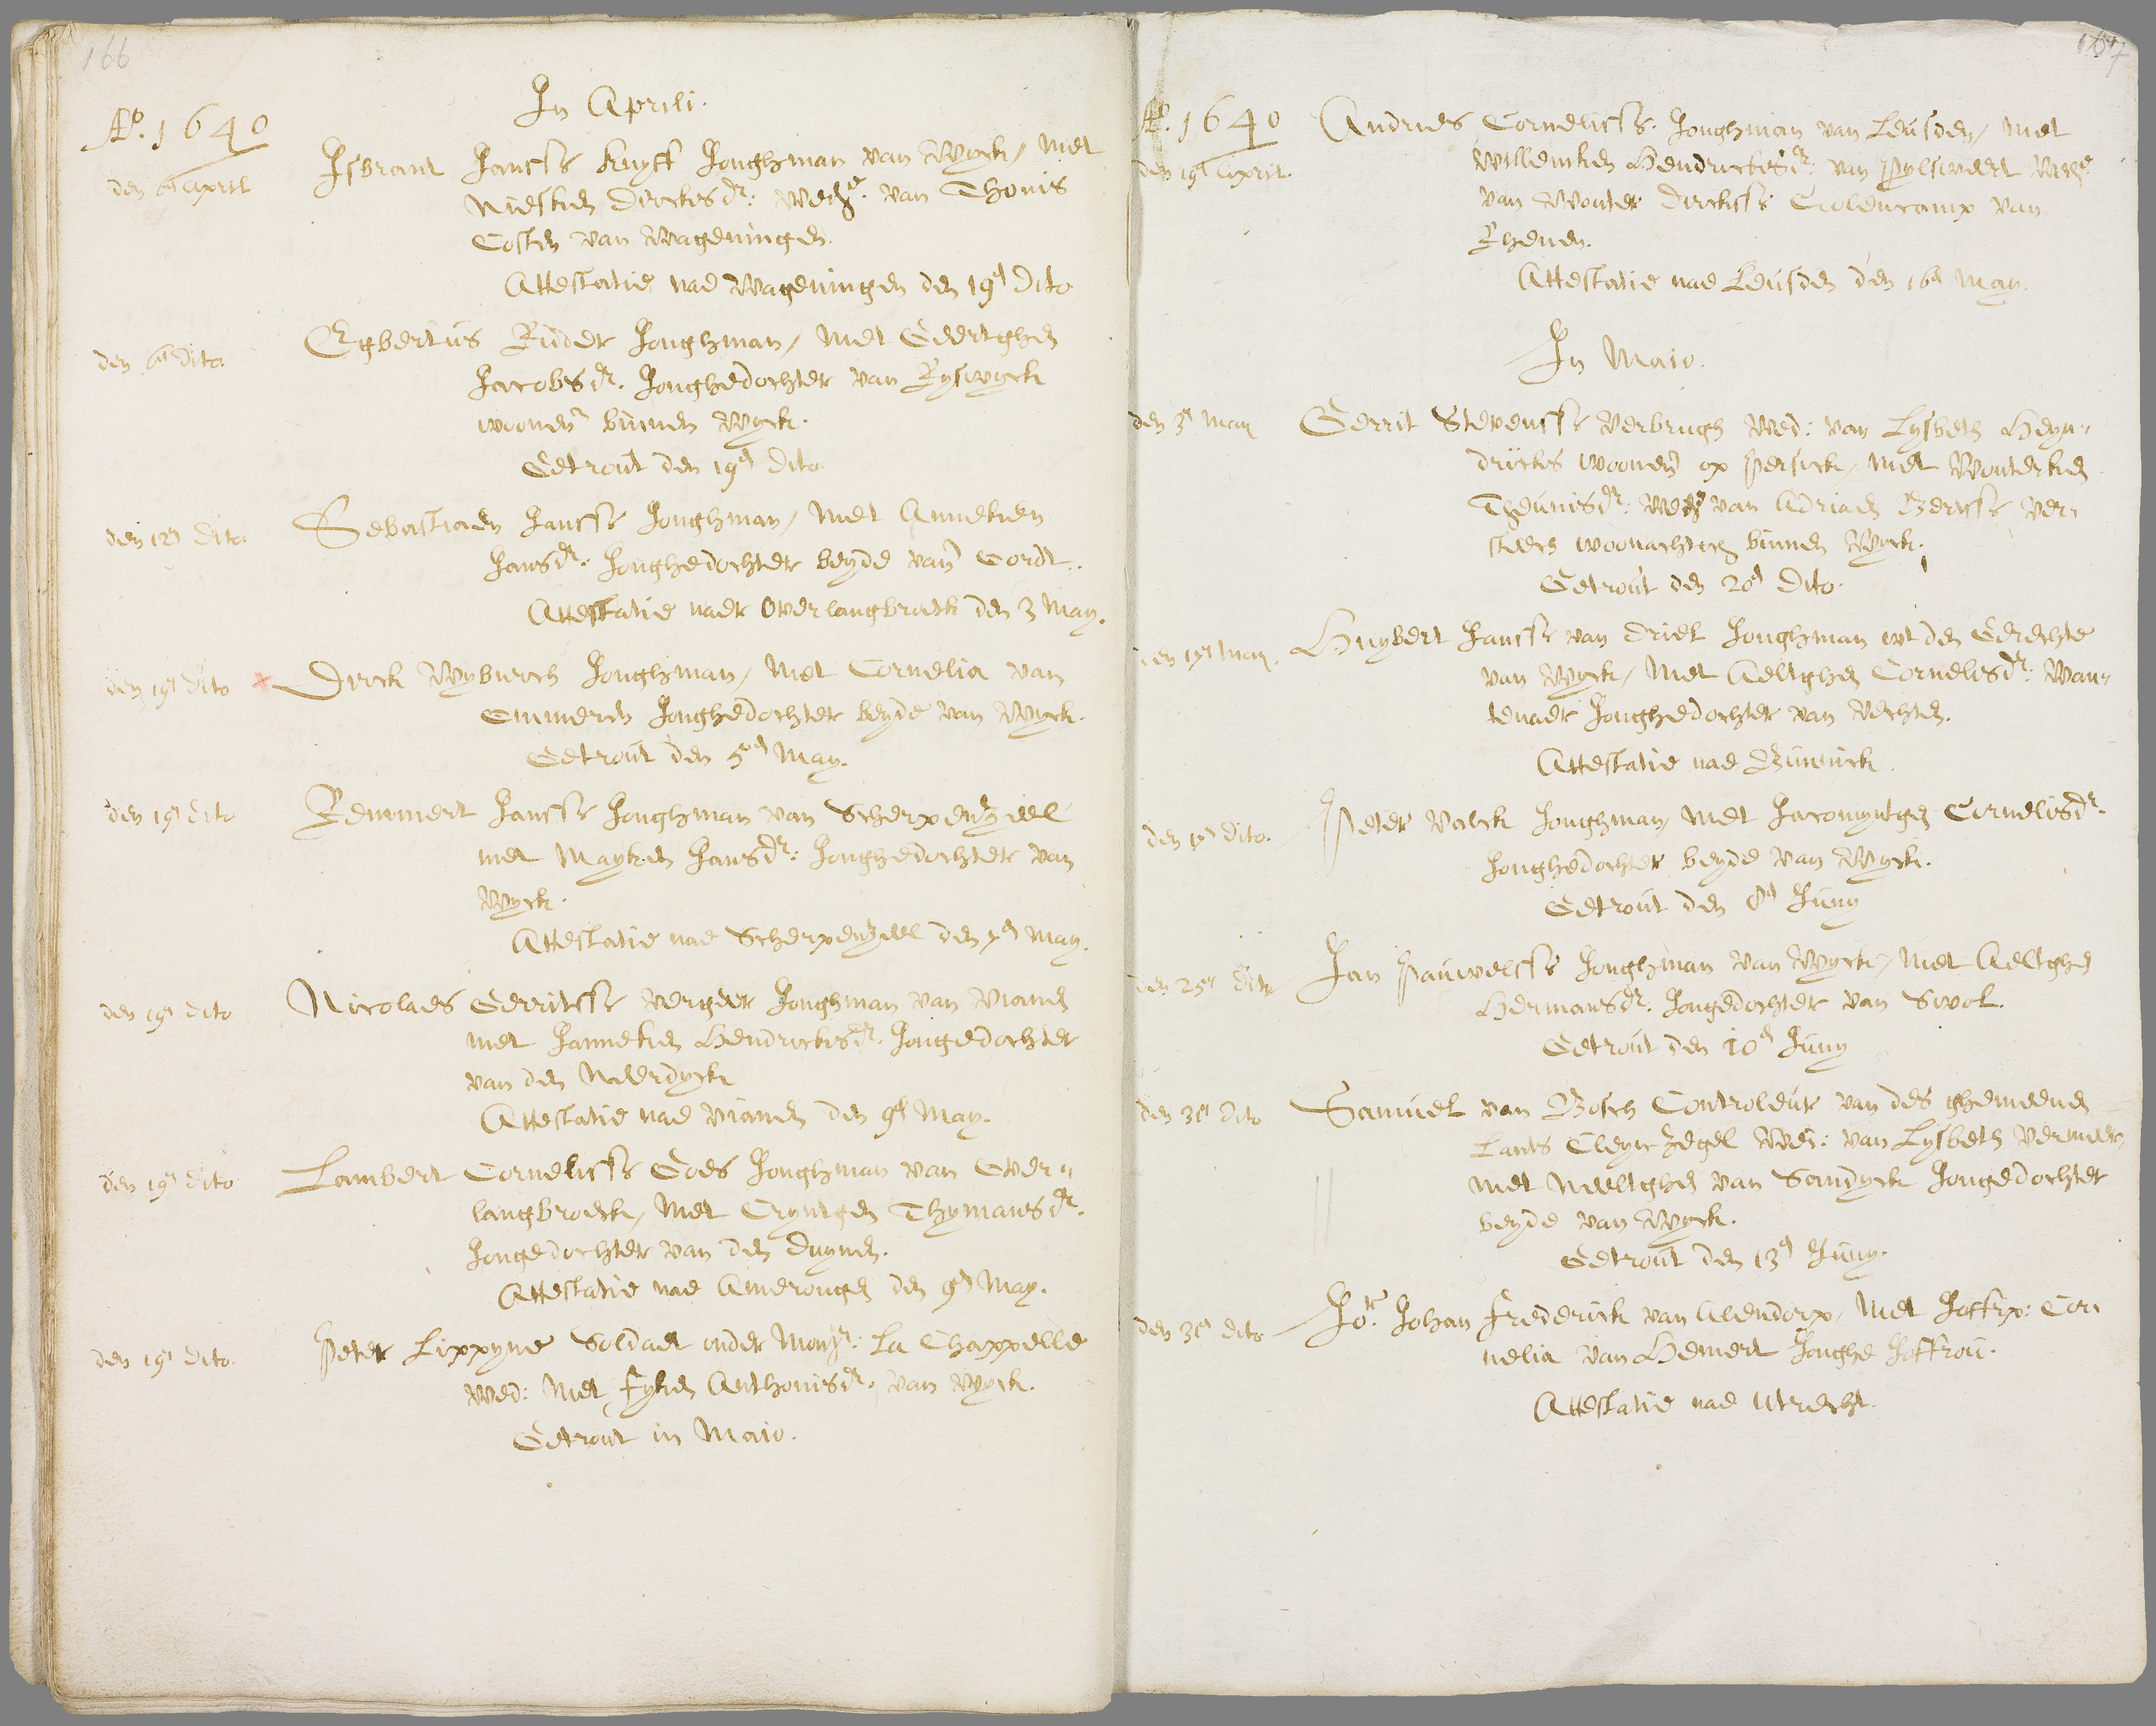 166
In Aprili.
Aº. 1640
den 6en april
Isbrant Janss Kuyff Jonghman van Wyck, met
Niesken Dirckx dr: wede. van Thonis
Costen van Wageningen.
Attestatie nae Wageningen den 19en dito
den 6en dito.
Egbertus Ruder Jonghman, met Geertghen
Jacobs dr. Jonghedochter van Ryswyck
woonen binnen Wyck.
Getrout den 19en dito
den 12en dito.
Sebastiaen Janss Jonghman, met Anneken
Jans dr. Jonghedochter beyde van Gordt.
Attestatie naer Overlangbroeck den 3 May.
den 19en dito
Dirck Wyburch Jonghman, met Cornelia van
Emmeren Jonghedochter beyde van Wyck.
Getrout den 5en May.
den 19en dito
Remmert Janss Jonghman van Scherpenzeel
met Mayken Jans dr: Jonghedochter van
Wyck.
Attestatie nae Scherpenzeel den 7en May.
den 19en dito
Nicolaes Gerritss Vergeer Jonghman van Vianen
met Janneken Hendrickx dr. Jongedochter
van den Neerdyck
Attestatie nae Vianen den 9en May.
den 19en dito
Lambert Cornelisss Goes Jonghman van Over-
langbroeck, met Cryntgen Thymans dr.
Jongedochter van den Duynen.
Attestatie nae Amerongen den 9en May.
den 19en dito.
Peter Lippyne Soldaet onder Monsr. La Chappelle
wed: met Fyken Anthonis dr. van Wyck.
Getrout in Maio.
167
Aº. 1640
den 19en April.
Andries Cornelisss. Jonghman van Leusden, met
Willemken Hendrickx dr: van Pylsweert wede
van Wouter Dirckss van
Rhenen.
Attestatie nae Leusden den 16en May.
In Maio.
den 3en May
Gerrit Stevenss Verbrugh Wed: van Lysbeth Heyn-
drickx woonen op , met Wouterken
Theunis dr: wede van Adriaen Gerritss Ver-
steech woonachtich binnen Wyck.
Getrout den 20en dito.
den May.
Huybert Janss van Driel Jonghman wt den Gerechte
van Wyck, met Aeltghen Cornelis dr: Wan-
tenaer Jonghedochter van Vechten.
Attestatie nae Bunnick.
den dito.
Peter Valck Jonghman, met Jacomyntgen Cornelis dr.
Jonghedochter beyde van Wyck.
Getrout den 8en Juny
den 25en dito
Jan Pauwelss Jonghman van Wyck, met Aeltghen
Hermans dr: Jongedochter van Swol.
Getrout den 10en Juny
den 31en dito
Samuel van Bosch Controleur van des ghemeene
Lants Cleyne Zegel Wed: van Lysbeth Vermeer,
met Neeltghen van Sandyck Jongedochter
beyde van Wyck.
Getrout den 13en Juny.
den 31en dito
Jor. Johan Frederick van Alendorp, met Joffr: Cor-
nelia van Hemert Jonghe Joffrou.
Attestatie nae Utrecht.